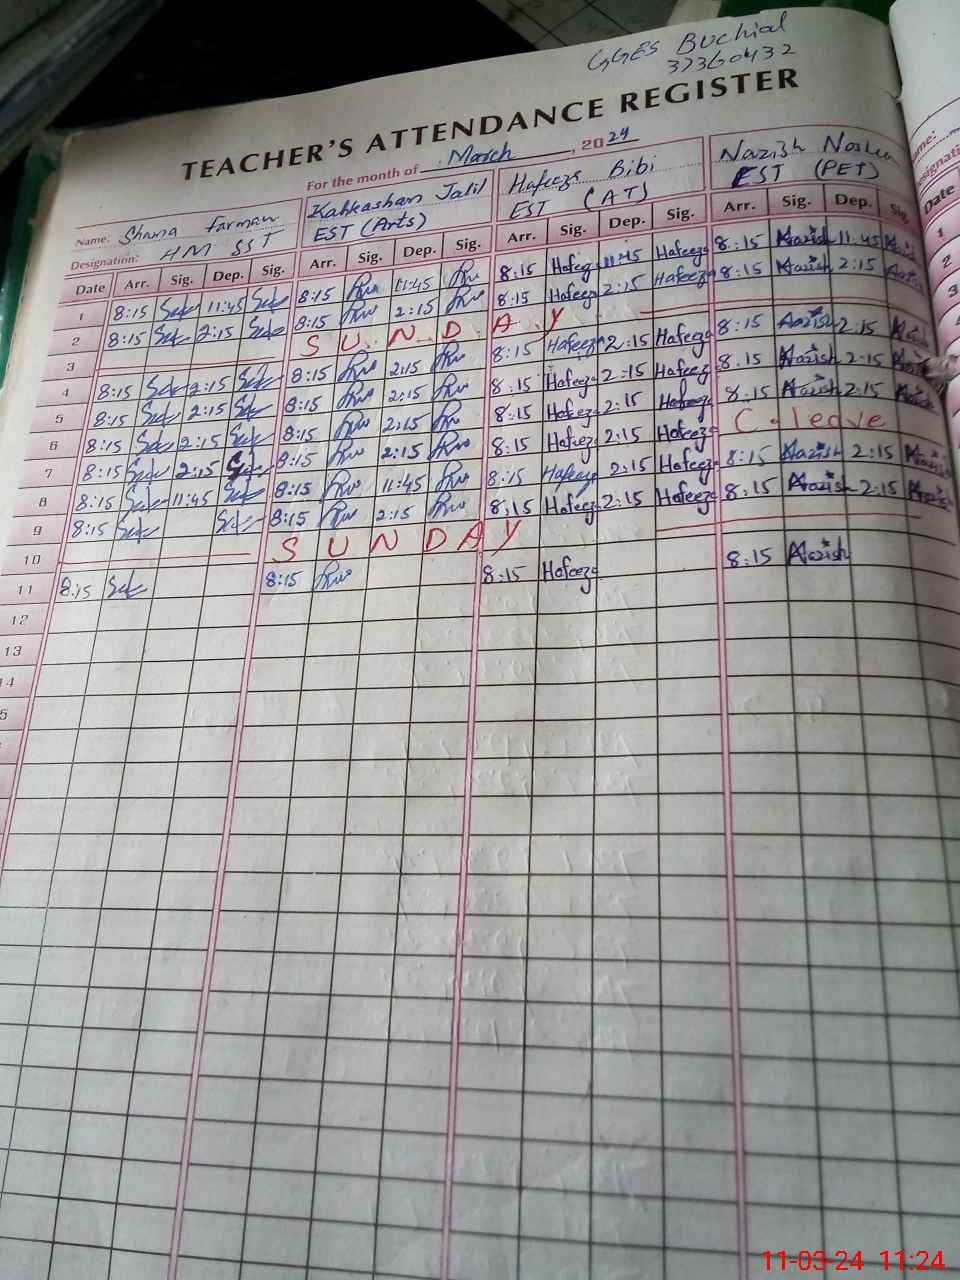 GGES Buchial
37360432
TEACHER'S ATTENDANCE REGISTER
For the month of March, 2024
Name: Shama Farman Kahkashan Jalil Hafeeza Bibi Nazish
Designation: HM SST EST (Arts) EST (AT) EST (PET)
Date Arr. Sig. Dep. Sig. Arr. Sig. Dep. Sig. Arr. Sig. Dep. Sig. Arr. Sig. Dep. Sig.
1 8:15 11:45 8:15 11:45 8:15 Hafeeza 11:45 Hafeeza 8:15 Nazish 11:45
2 8:15 2:15 8:15 2:15 8:15 Hafeeza 2:15 Hafeeza 8:15 Nazish 2:15
3 SUNDAY
4 8:15 2:15 8:15 2:15 8:15 Hafeeza 2:15 Hafeeza 8:15 Nazish 2:15 Nazish
5 8:15 2:15 8:15 2:15 8:15 Hafeeza 2:15 Hafeeza 8:15 Nazish 2:15 Nazish
6 8:15 2:15 8:15 2:15 8:15 Hafeeza 2:15 Hafeeza 8:15 Nazish 2:15 Nazish
7 8:15 2:15 8:15 2:15 8:15 Hafeeza 2:15 Hafeeza C. leave
8 8:15 11:45 8:15 11:45 8:15 Hafeeza 2:15 Hafeeza 8:15 Nazish 2:15 Nazish
9 8:15 8:15 2:15 8:15 Hafeeza 2:15 Hafeeza 8:15 Nazish 2:15 Nazish
10 SUNDAY
11 8:15 8:15 8:15 Hafeeza 8:15 Nazish
12
13
14
11-03-24 11:24